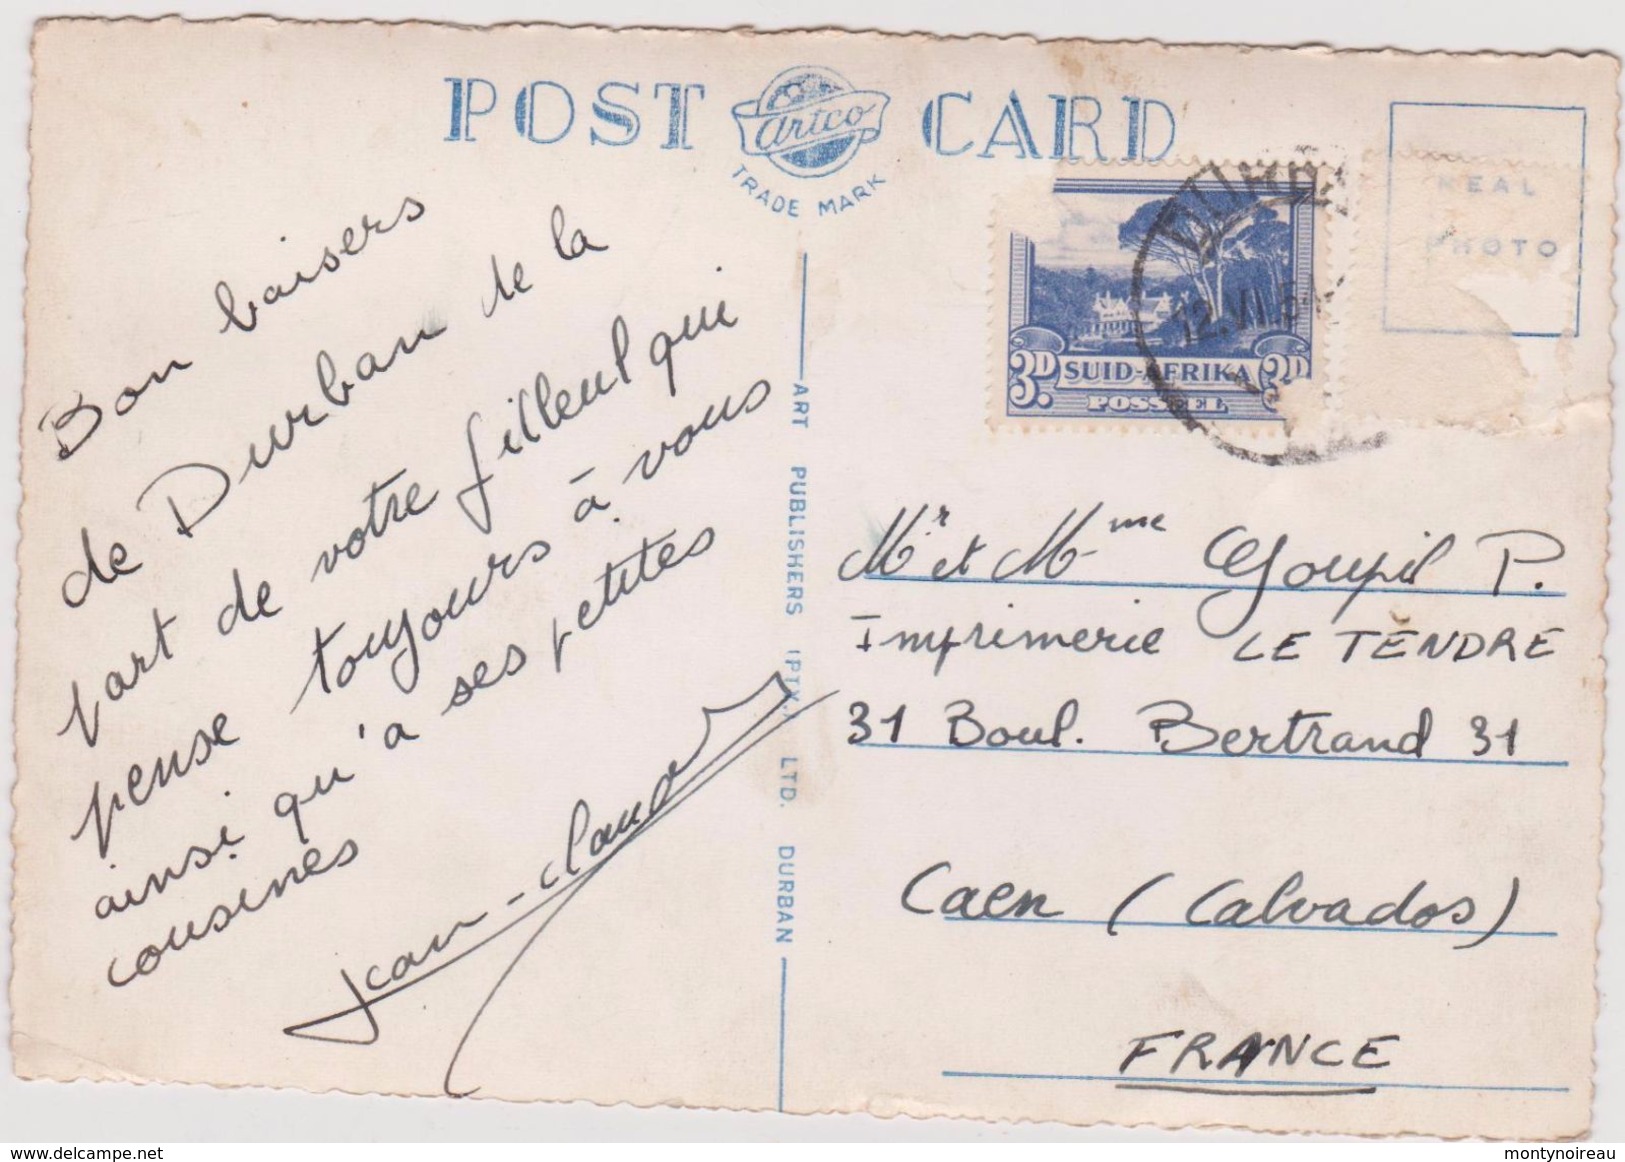 POST CARD
artco
TRADE MARK
REAL
PHOTO
12.VI.5
3D. SUID-AFRIKA 3D
POSSEEL
Bon baisers
de Durban de la
part de votre filleul qui
pense toujours à vous
ainsi qu'a ses petites
cousines
Jean-Claude
ART PUBLISHERS (PTY.) LTD. DURBAN
Mr et Mme Goupil P.
Imprimerie LE TENDRE
31 Boul. Bertrand 31
Caen (Calvados)
FRANCE
delcampe.net
montynoireau